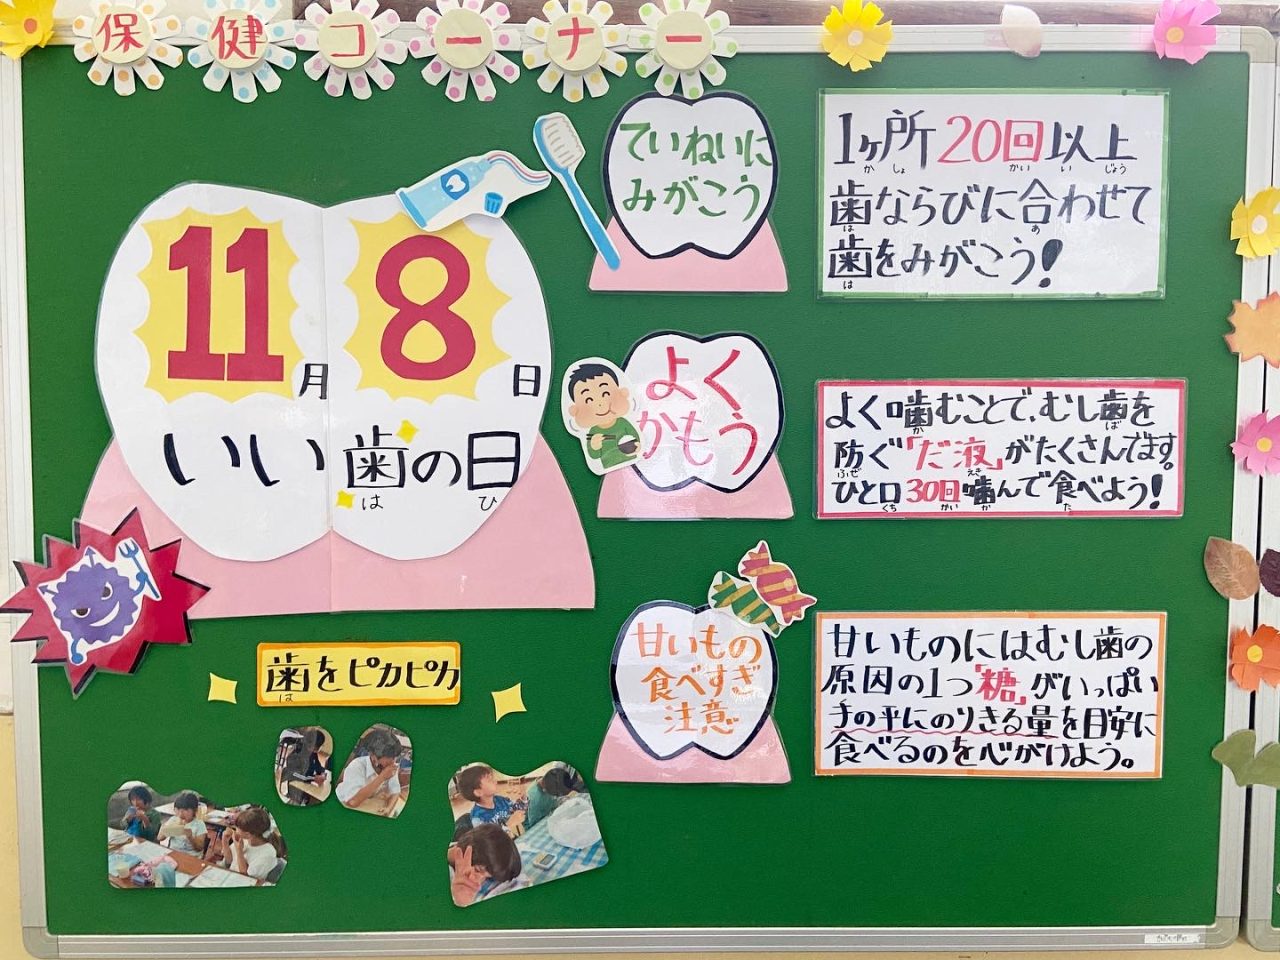 保健コーナー
11月8日
いい歯の日
は
ひ
歯をピカピカ
は
ていねいに
みがこう
1ヶ所20回以上
かしょ
かい
い
じょう
歯ならびに合わせて
は
あ
歯をみがこう!
は
よく
かもう
よく噛むことで、むし歯を
か
ば
防ぐ「だ液」がたくさんでます。
ふせ
えき
ひと口30回噛んで食べよう!
くち
かい
か
た
甘いもの
食べすぎ
注意
甘いものにはむし歯の
原因の1つ「糖」がいっぱい
手の平にのりきる量を目安に
食べるのを心がけよう。